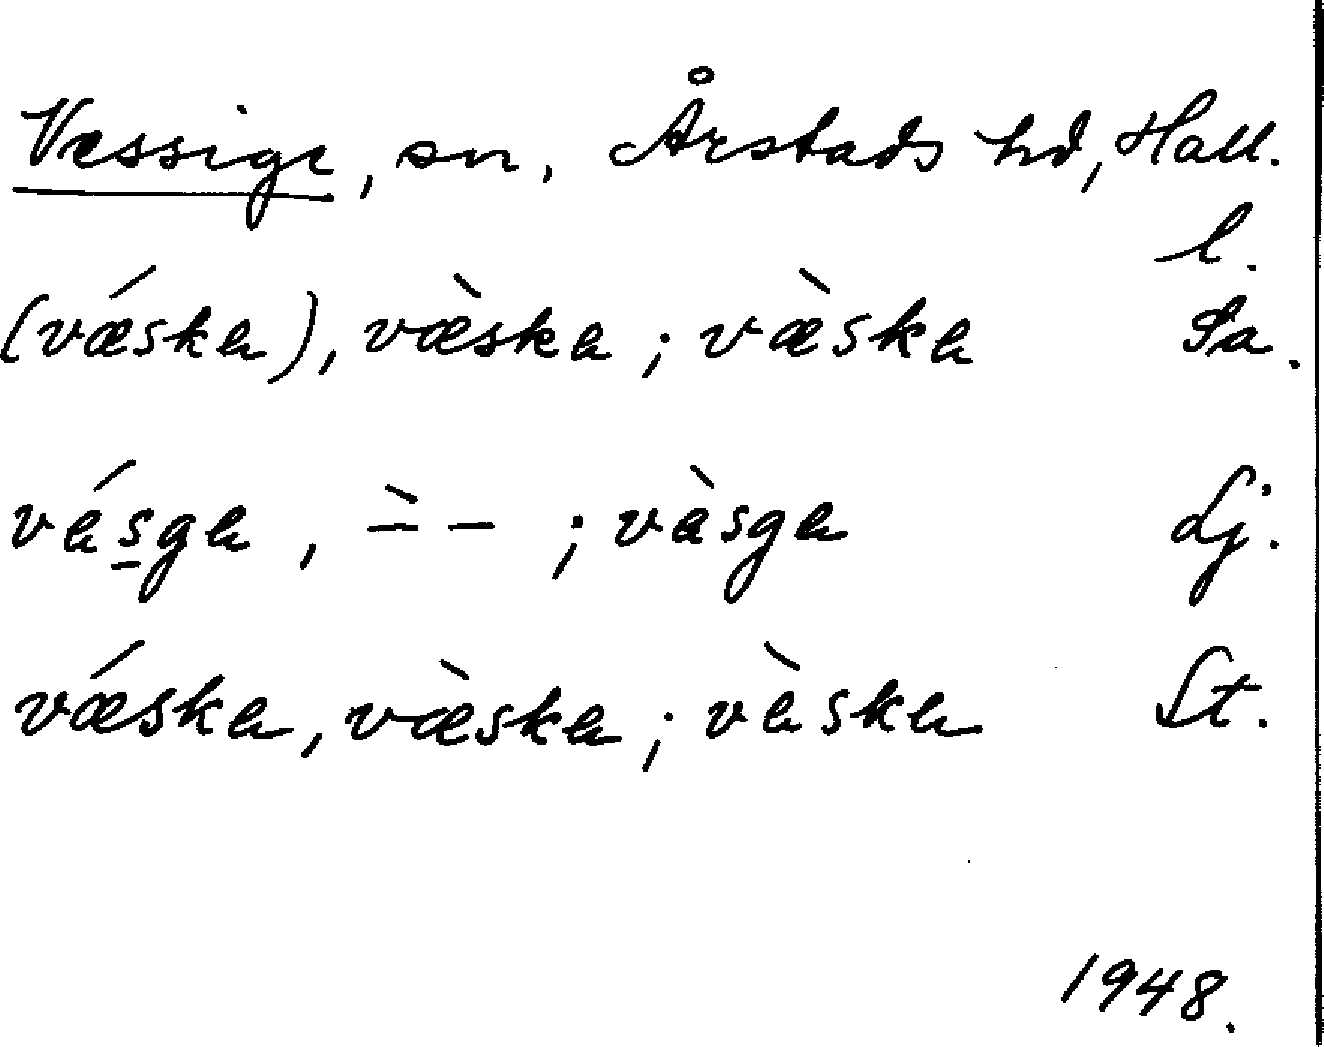 Vessige, sn, Årstads hd, Hall. l.
(vǽska), væ̀ska ; væ̀ska Sa.
vásga, –̀ – ; vàsga Lj.
vǽska, væ̀ska ; vàska St.
1948.